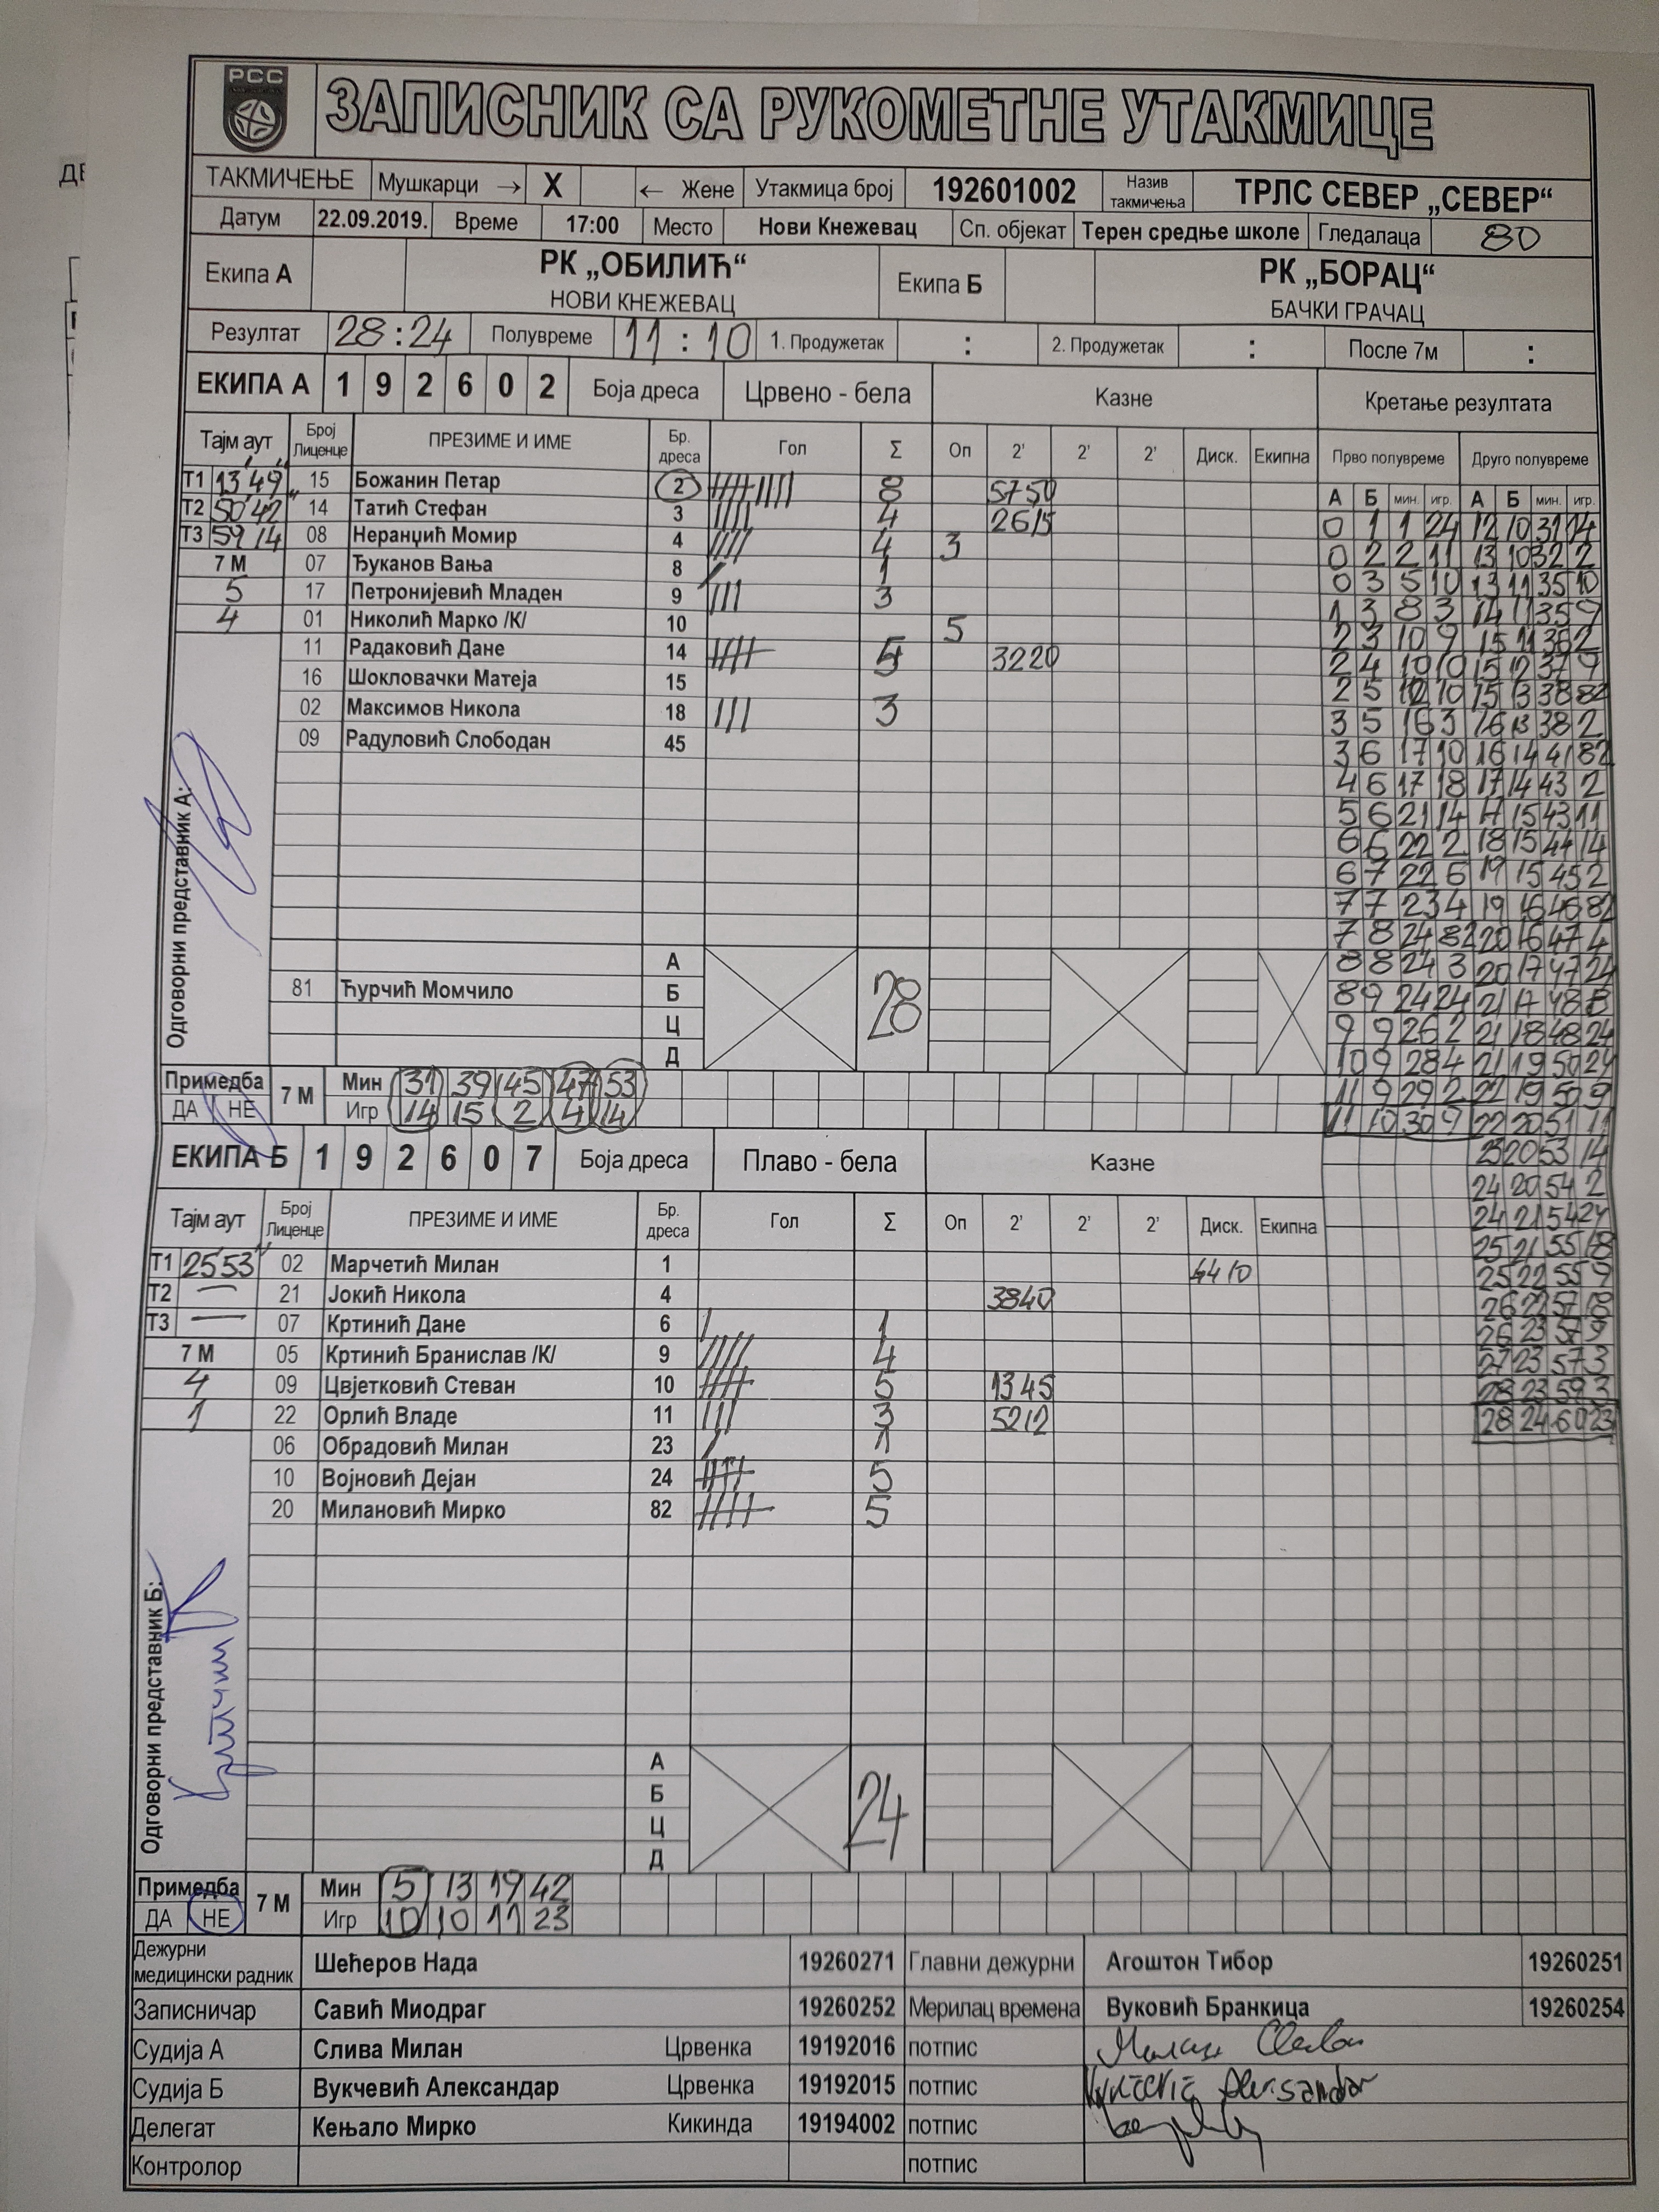 РСС
ЗАПИСНИК СА РУКОМЕТНЕ УТАКМИЦЕ
ТАКМИЧЕЊЕ Мушкарци → X ← Жене Утакмица број 192601002 Назив такмичења ТРЛС СЕВЕР „СЕВЕР“
Датум 22.09.2019. Време 17:00 Место Нови Кнежевац Сп. објекат Терен средње школе Гледалаца 80
Екипа А РК „ОБИЛИЋ“ НОВИ КНЕЖЕВАЦ Екипа Б РК „БОРАЦ“ БАЧКИ ГРАЧАЦ
Резултат 28:24 Полувреме 11:10 1. Продужетак : 2. Продужетак : После 7м :
ЕКИПА А 1 9 2 6 0 2 Боја дреса Црвено - бела Казне Кретање резултата
Тајм аут Број Лиценце ПРЕЗИМЕ И ИМЕ Бр. дреса Гол Σ Оп 2' 2' 2' Диск. Екипна Прво полувреме Друго полувреме
А Б мин. игр. А Б мин. игр.
Т1 13'49" 15 Божанин Петар 2 8 5750
Т2 50'42" 14 Татић Стефан 3 4 2615
Т3 59 14 08 Неранџић Момир 4 4 3
7 М 07 Ђуканов Вања 8 1
5 17 Петронијевић Младен 9 3
4 01 Николић Марко /К/ 10 5
11 Радаковић Дане 14 5 3220
16 Шокловачки Матеја 15
02 Максимов Никола 18 3
09 Радуловић Слободан 45
0 1 1 24 12 10 31 14
0 2 2 11 13 10 32 2
0 3 5 10 13 11 35 10
1 3 8 3 14 11 35 9
2 3 10 9 15 11 36 2
2 4 10 10 15 12 37 9
2 5 12 10 15 13 38 82
3 5 16 3 16 13 38 2
3 6 17 10 16 14 41 82
4 6 17 18 17 14 43 2
5 6 21 14 17 15 43 11
6 6 22 2 18 15 44 14
6 7 22 6 19 15 45 2
7 7 23 4 19 16 46 82
7 8 24 82 20 16 47 4
8 8 24 3 20 17 47 24
8 9 24 24 21 17 48 8
9 9 26 2 21 18 48 24
10 9 28 4 21 19 50 24
11 9 29 2 22 19 50 9
11 10 30 9 22 20 51 11
23 20 53 14
24 20 54 2
24 21 54 24
25 21 55 18
25 22 55 9
26 22 57 18
26 23 57 9
27 23 57 3
28 23 59 3
28 24 60 23
Одговорни представник А:
А
81 Ћурчић Момчило Б 28
Ц
Д
Примедба ДА НЕ 7 М
Мин 31 39 45 47 53
Игр 14 15 2 4 14
ЕКИПА Б 1 9 2 6 0 7 Боја дреса Плаво - бела Казне
Тајм аут Број Лиценце ПРЕЗИМЕ И ИМЕ Бр. дреса Гол Σ Оп 2' 2' 2' Диск. Екипна
Т1 25'53" 02 Марчетић Милан 1 4410
Т2 — 21 Јокић Никола 4 3840
Т3 — 07 Кртинић Дане 6 1
7 М 05 Кртинић Бранислав /К/ 9 4
4 09 Цвјетковић Стеван 10 5 1345
1 22 Орлић Владе 11 3 5212
06 Обрадовић Милан 23 1
10 Војновић Дејан 24 5
20 Милановић Мирко 82 5
Одговорни представник Б:
А
Б 24
Ц
Д
Примедба ДА НЕ 7 М
Мин 5 13 19 42
Игр 10 10 11 23
Дежурни медицински радник Шећеров Нада 19260271 Главни дежурни Агоштон Тибор 19260251
Записничар Савић Миодраг 19260252 Мерилац времена Вуковић Бранкица 19260254
Судија А Слива Милан Црвенка 19192016 потпис
Судија Б Вукчевић Александар Црвенка 19192015 потпис
Делегат Кењало Мирко Кикинда 19194002 потпис
Контролор потпис